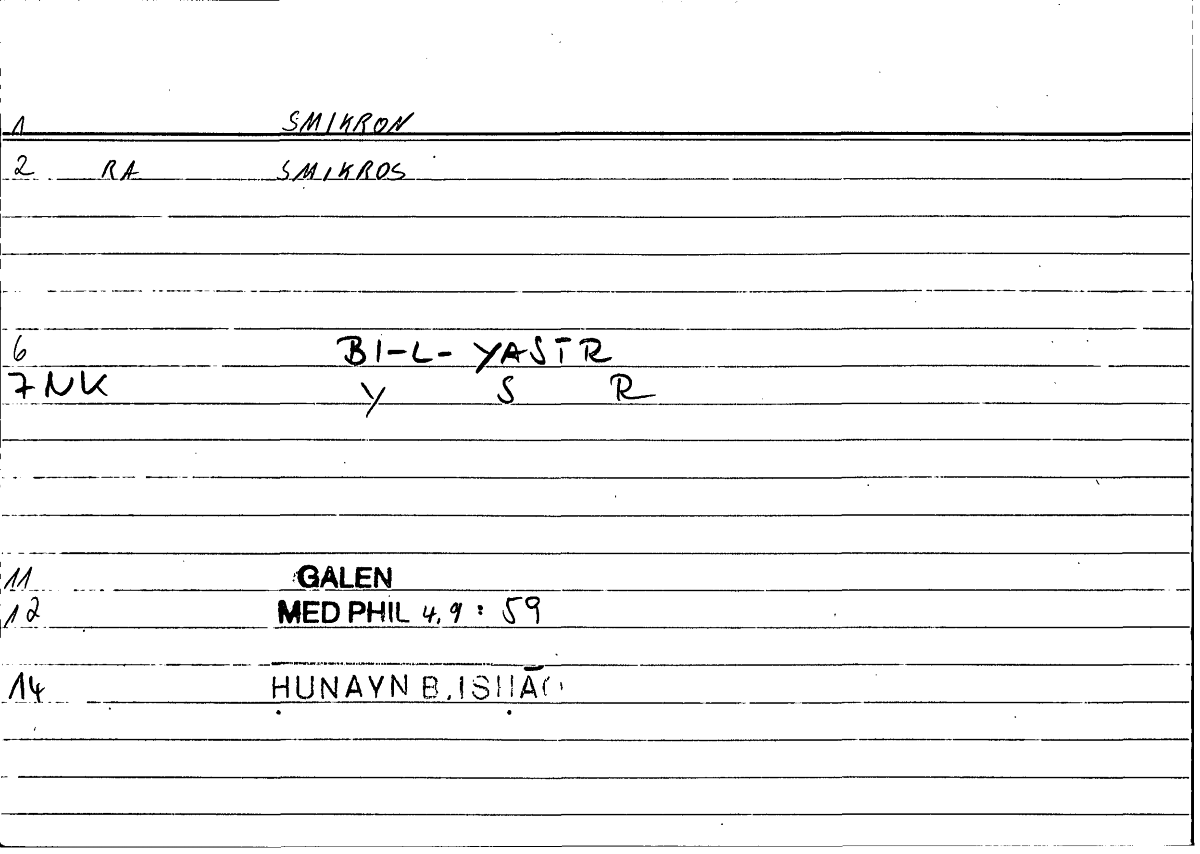 1 SMIKRON
2 RA SMIKROS
6 BI-L- YASĪR
7 NK Y S R
11 GALEN
12 MED PHIL 4,9 : 59
14 ḤUNAYN B. ISḤĀQ